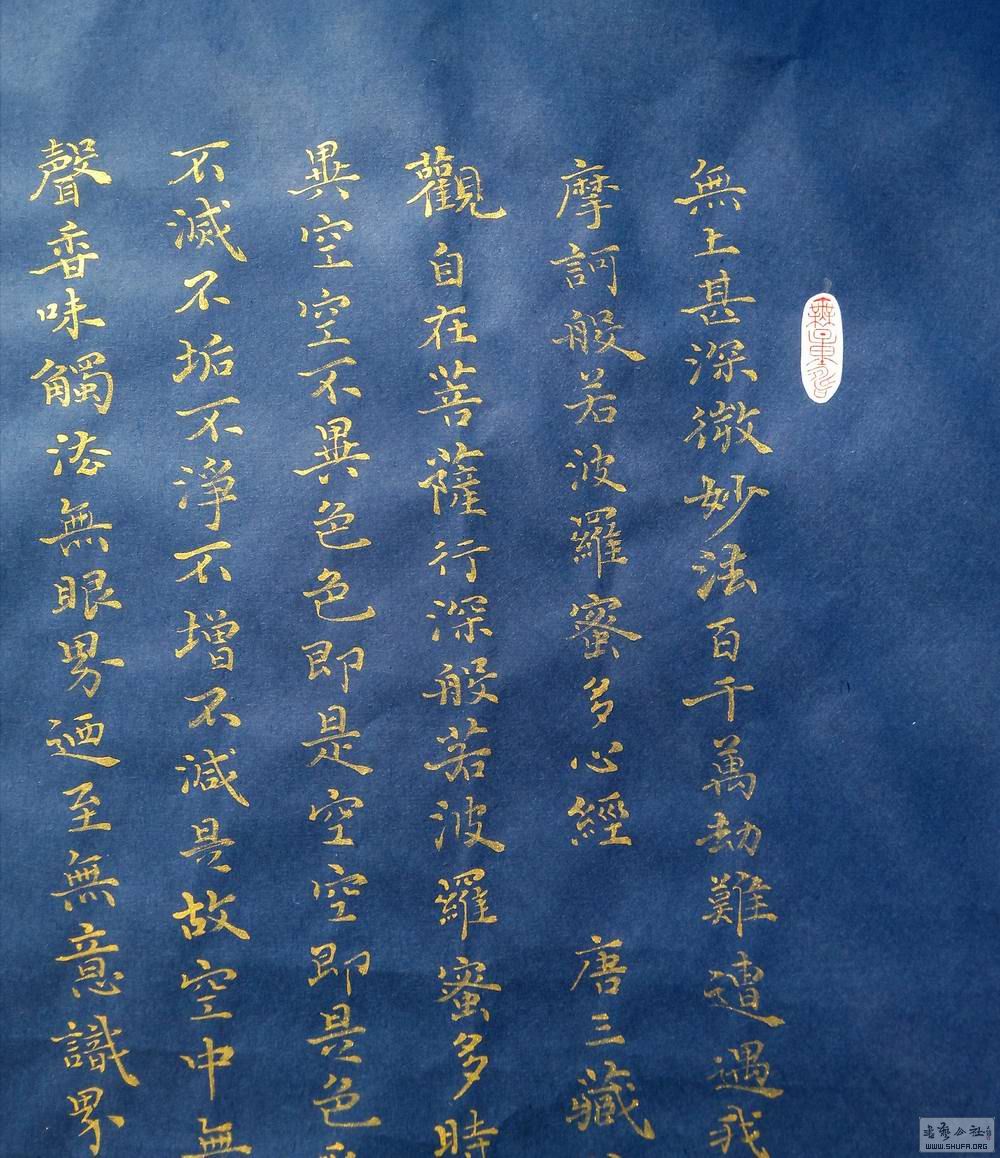 無上甚深微妙法百千萬劫難遭遇我
摩訶般若波羅蜜多心經 唐三藏
觀自在菩薩行深般若波羅蜜多時
異空空不異色色即是空空即是色
不滅不垢不淨不增不減是故空中無
聲香味觸法無眼界迺至無意識界
WWW.SHUFA.ORG